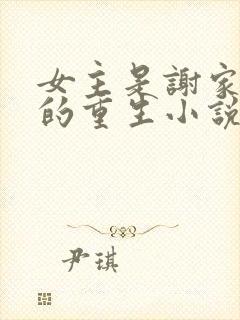 女主是謝家
的重生小說
尹琪